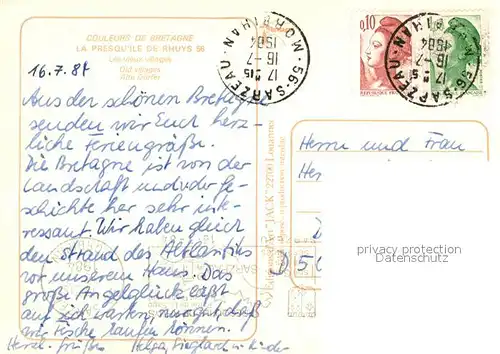 COULEURS DE BRETAGNE
LA PRESQU'ILE DE RHUYS 56
Old villages
16.7.84
Aus der schönen Bretagne
senden wir Euch herz-
liche Feriengrüße.
Die Bretagne ist von der
Landschaft und der Ge-
schichte her sehr inte-
ressant. Wir haben gleich
den Strand des Atlantiks
vor unserem Haus. Das
große Angelglück läßt
auf sich warten, morgh. daß
wir Fische kaufen können.
Herzl. Grüße Helga,
56 SARZEAU
MORBIHAN
17 H15
16-7
1984
0,10
REPUBLIQUE FRANÇAISE
56 SARZEAU
MORBIHAN
17 H15
16-7
1984
"JACK" 22700 Louannec
Herrn und Frau
D
privacy protection
Datenschutz